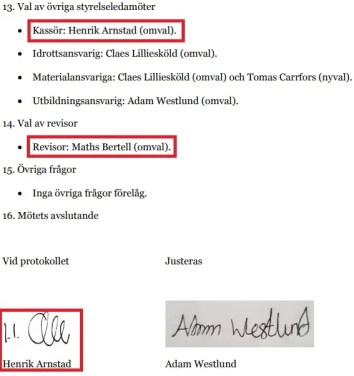 13. Val av övriga styrelseledamöter
• Kassör: Henrik Arnstad (omval).
• Idrottsansvarig: Claes Lilliesköld (omval).
• Materialansvariga: Claes Lilliesköld (omval) och Tomas Carrfors (nyval).
• Utbildningsansvarig: Adam Westlund (omval).
14. Val av revisor
• Revisor: Maths Bertell (omval).
15. Övriga frågor
• Inga övriga frågor förelåg.
16. Mötets avslutande
Vid protokollet Justeras
Adam Westlund
Henrik Arnstad Adam Westlund